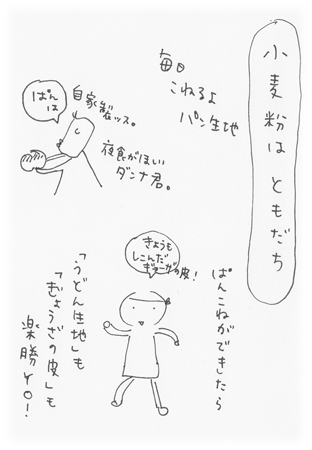 小麦粉は ともだち
毎日
こねるよ
パン生地
ぱん
は
自家製ッス。
夜食がほしい
ダンナ君。
ぱんこねができたら
きょうも
しこんだ
ギョーザの皮!
「うどん生地」も
「ぎょうざの皮」も
楽勝YO!